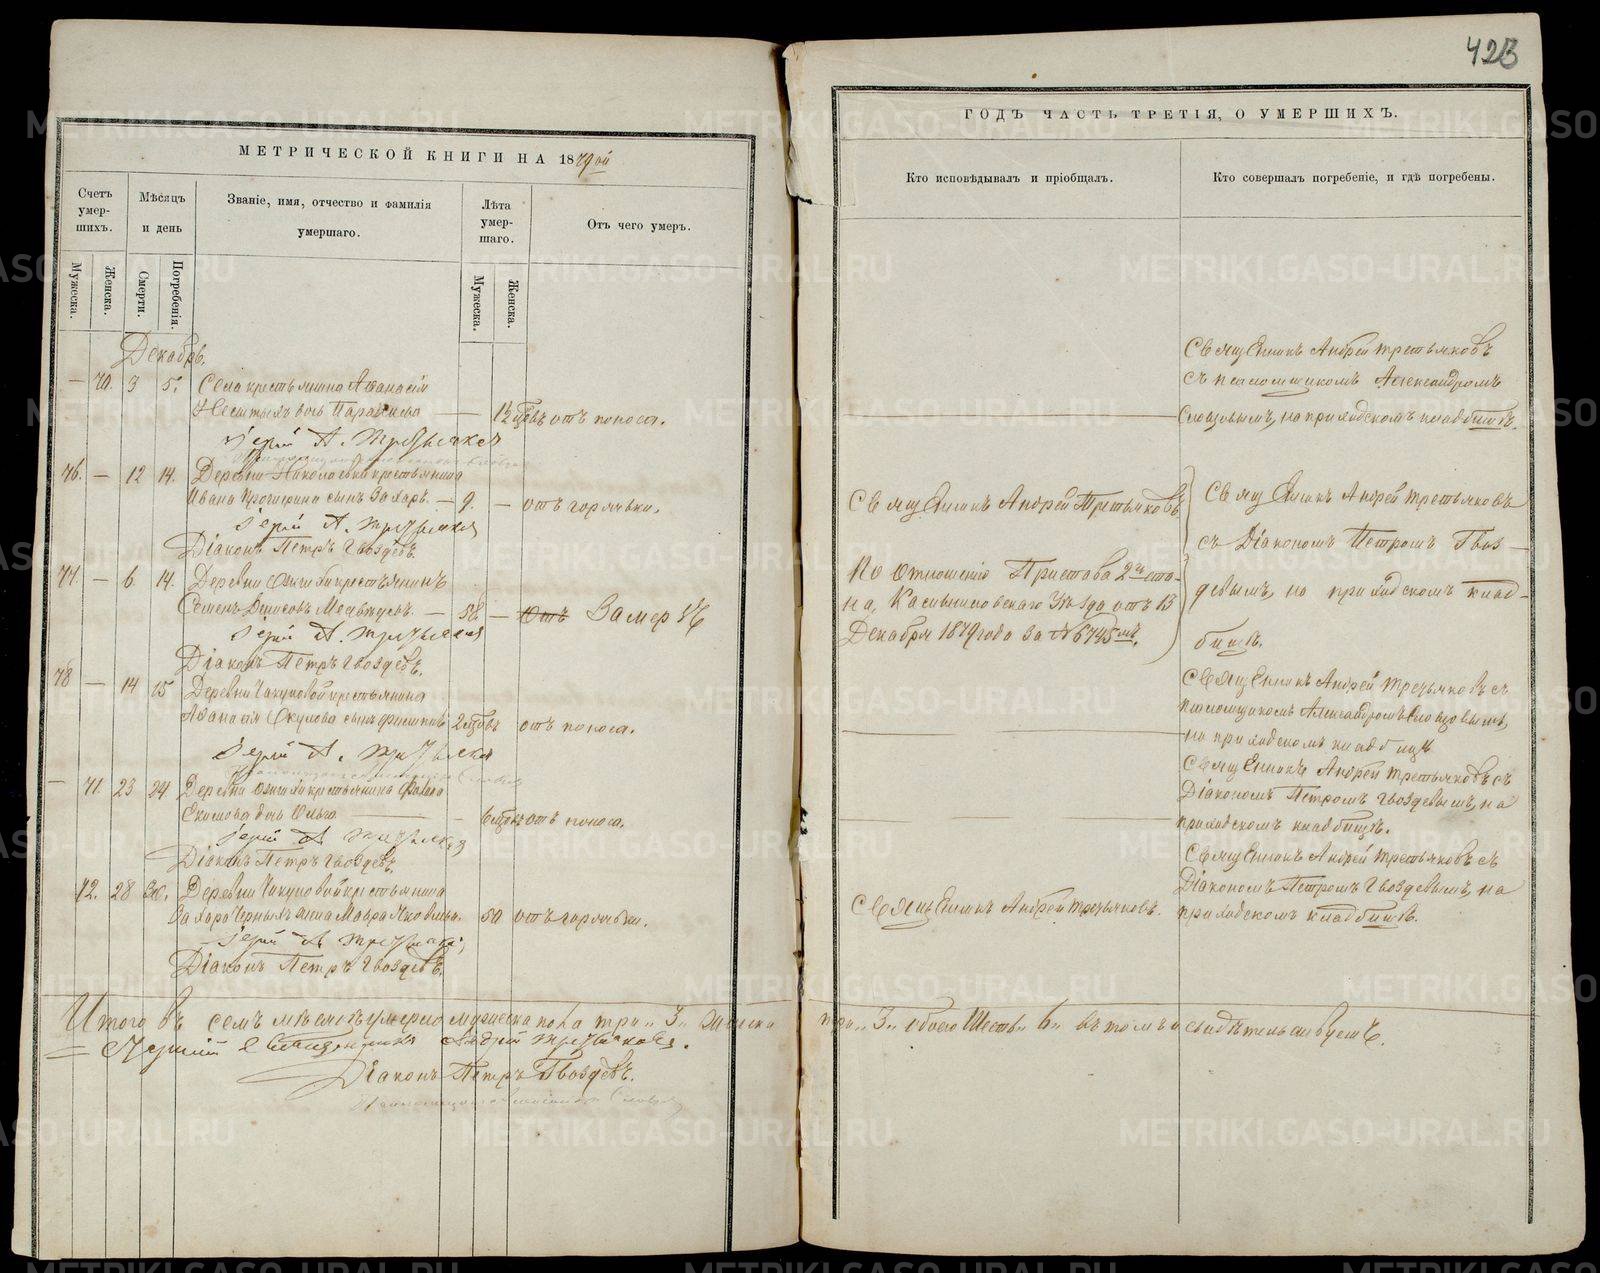 423
МЕТРИЧЕСКОЙ КНИГИ НА 1879ой
ГОДЪ ЧАСТЬ ТРЕТІЯ, О УМЕРШИХЪ.
Счетъ умер-
шихъ.
Мѣсяцъ
и день
Званіе, имя, отчество и фамилія
умершаго.
Лѣта
умер-
шаго.
Отъ чего умеръ.
Кто исповѣдывалъ и пріобщалъ.
Кто совершалъ погребеніе, и гдѣ погребены.
Мужеска.
Женска.
Смерти.
Погребенія.
Мужеска.
Женска.
Декабрь.
— 70. 3 5. Села крестьянина Аѳанасія
дочь — отъ поноса.
Іерей А. Третьяковъ
Священникъ Андрей Третьяковъ
съ псаломщикомъ Александромъ
Словцовымъ, на приходскомъ кладбищѣ.
76. — 12 14. Деревни Николаевки крестьянина
Ивана сынъ Захаръ. — 9. — отъ горячки.
Іерей А. Третьяковъ
Діаконъ Петръ Гвоздевъ.
Священникъ Андрей Третьяковъ
Священникъ Андрей Третьяковъ
съ Діакономъ Петромъ Гвоз-
девымъ, на приходскомъ клад-
бищѣ.
77. — 6 14. Деревни крестьянинъ
Семенъ Денисовъ — 58. — Отъ Замерзъ
Іерей А. Третьяковъ
Діаконъ Петръ Гвоздевъ.
По отношенію Пристава 2го ста-
на, Уѣзда отъ 13
Декабря 1879 года за № 6745мъ.
78 — 14 15 Деревни Чикуновой крестьянина
Аѳанасія Окулова сынъ отъ поноса.
Іерей А. Третьяковъ
Священникъ Андрей Третьяковъ съ
псаломщикомъ Александромъ Словцовымъ,
на приходскомъ кладбищѣ
— 71. 23 24. Деревни крестьянина
дочь Ольга — отъ поноса.
Іерей А. Третьяковъ
Діаконъ Петръ Гвоздевъ.
Священникъ Андрей Третьяковъ съ
Діакономъ Петромъ Гвоздевымъ, на
приходскомъ кладбищѣ.
72. 28 30. Деревни Чикуновой крестьянина
Захара Черныхъ жена Мавра Яковлева. 50 отъ горячки.
Іерей А. Третьяковъ
Діаконъ Петръ Гвоздевъ.
Священникъ Андрей Третьяковъ.
Священникъ Андрей Третьяковъ съ
Діакономъ Петромъ Гвоздевымъ, на
приходскомъ кладбищѣ.
Итого въ семъ мѣсяцѣ умерло мужеска пола три „3„ женска три „3„ обоего Шесть „6„ въ томъ и свидѣтельствуемъ.
Священникъ Андрей Третьяковъ.
Діаконъ Петръ Гвоздевъ.
METRIKI.GASO-URAL.RU